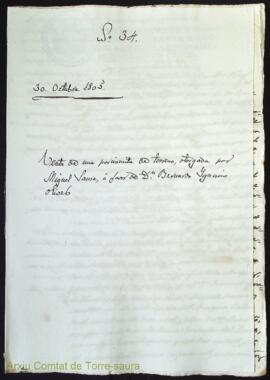 Nº 34.
30. Octubre 1803.
Venta de una porcioncita de terreno, otorgada por
Miguel Saura, á favor de Dⁿ Bernardo Ygnacio
Olives
Arxiu Comtat de Torre-saura